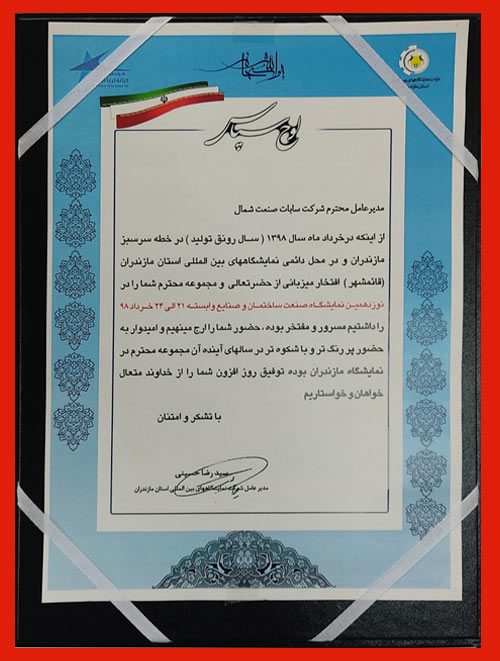 لوح سپاس
مدیرعامل محترم شرکت سابات صنعت شمال
از اینکه درخرداد ماه سال ۱۳۹۸ ( سـال رونق تولید ) در خطه سرسبز
مازندران و در محل دائمی نمایشگاههای بین المللی استان مازندران
(قائمشهر) افتخار میزبانی از حضرتعالی و مجموعه محترم شما را در
نوزدهمین نمایشگاه صنعت ساختمان و صنایع وابسته ۲۱ الی ۲۴ خرداد ۹۸
را داشتیم مسرور و مفتخر بوده ، حضور شما را ارج مینهیم و امیدوار به
حضور پر رنگ تر و با شکوه تر در سالهای آینده آن مجموعه محترم در
نمایشگاه مازندران بوده توفیق روز افزون شما را از خداوند متعال
خواهان و خواستاریم
با تشکر و امتنان
سید رضا حسینی
مدیر عامل شرکت نمایشگاههای بین المللی استان مازندران